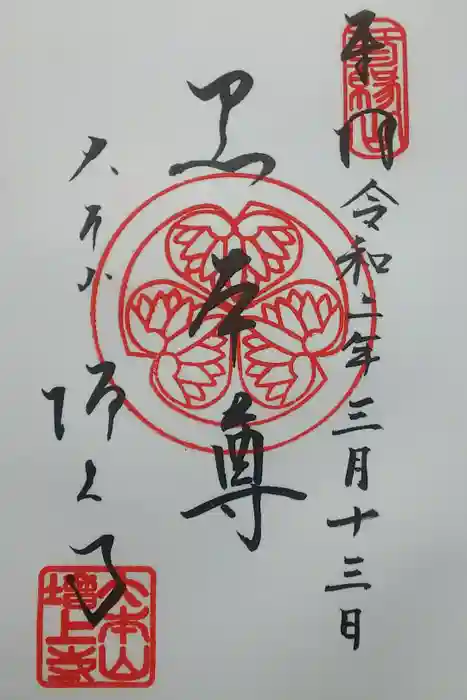 奉拝 令和二年三月十三日
黒本尊
大本山 増上寺
三縁山
大本山
增上寺